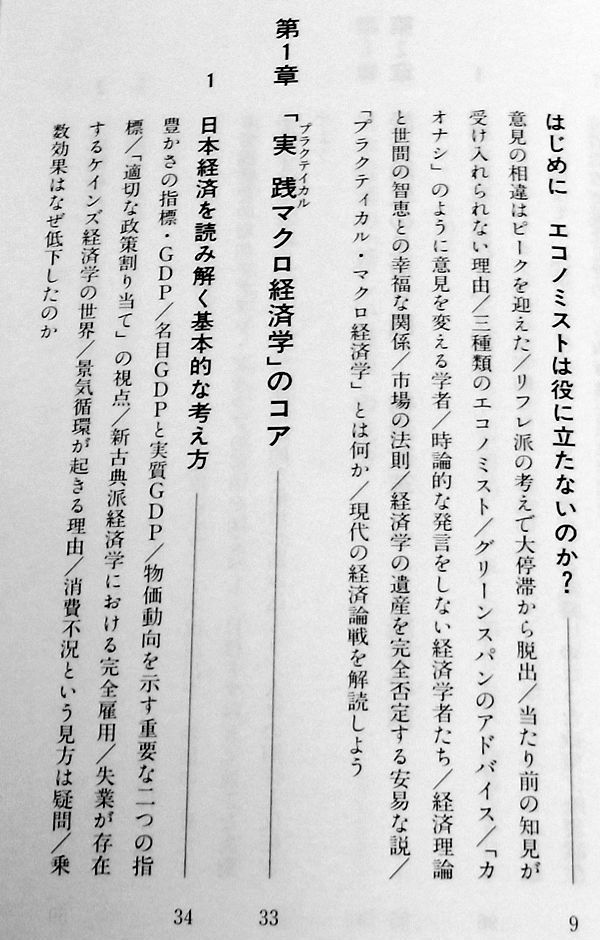 はじめに　エコノミストは役に立たないのか？ 9
意見の相違はピークを迎えた／リフレ派の考えで大停滞から脱出／当たり前の知見が
受け入れられない理由／三種類のエコノミスト／グリーンスパンのアドバイス／「カ
オナシ」のように意見を変える学者／時論的な発言をしない経済学者たち／経済理論
と世間の智恵との幸福な関係／市場の法則／経済学の遺産を完全否定する安易な説／
「プラクティカル・マクロ経済学」とは何か／現代の経済論戦を解読しよう
プラクティカル
第1章　「実践マクロ経済学」のコア 33
1　日本経済を読み解く基本的な考え方 34
豊かさの指標・GDP／名目GDPと実質GDP／物価動向を示す重要な二つの指
標／「適切な政策割り当て」の視点／新古典派経済学における完全雇用／失業が存在
するケインズ経済学の世界／景気循環が起きる理由／消費不況という見方は疑問／乗
数効果はなぜ低下したのか